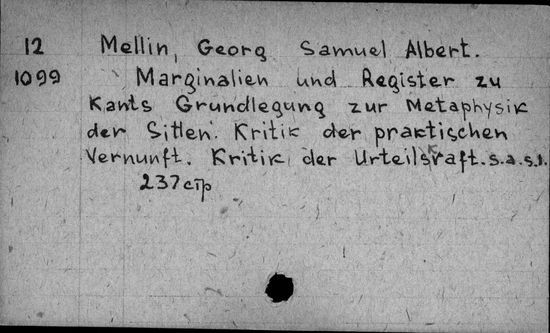 12 Mellin, Georg Samuel Albert.
1099 Marginalien und Register zu
Kants Grundlegung zur Metaphysik
der Sitten. Kritik der praktischen
Vernunft. Kritik der Urteilskraft. s.a.s.l.
237 стр